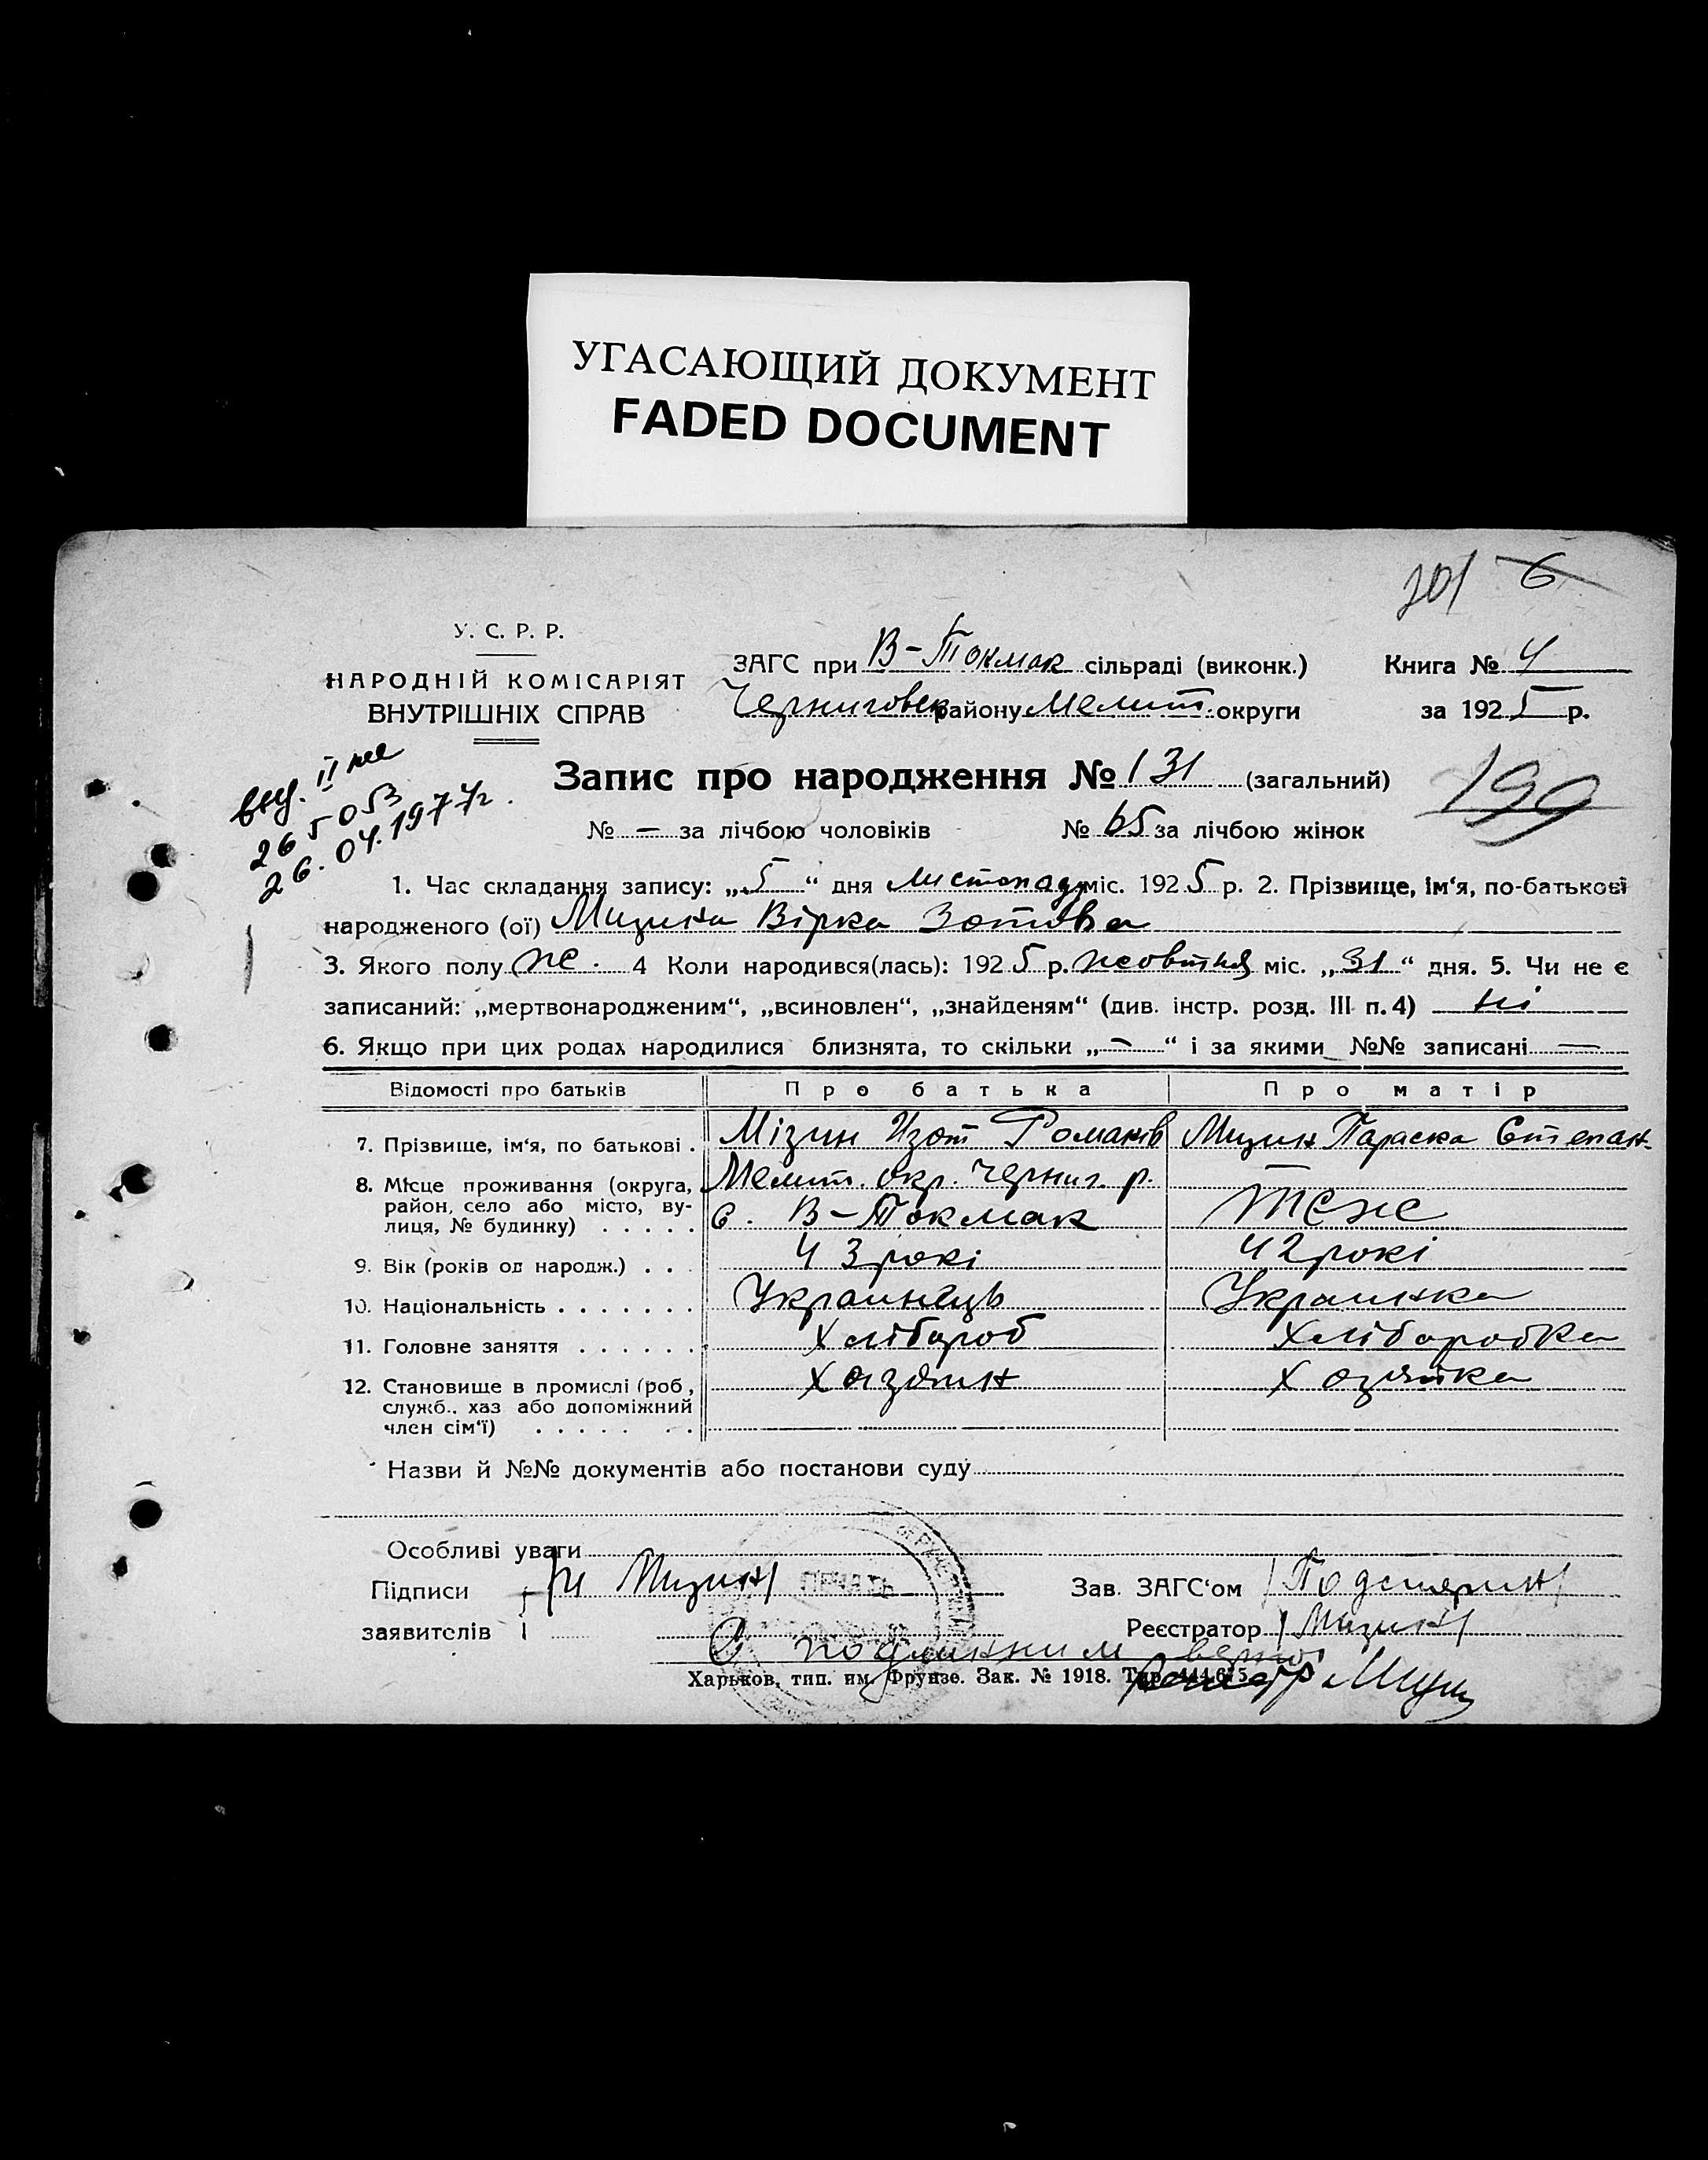 УГАСАЮЩИЙ ДОКУМЕНТ
FADED DOCUMENT
201 6
У. С. Р. Р.
НАРОДНІЙ КОМІСАРІЯТ
ВНУТРІШНІХ СПРАВ
ЗАГС при В-Токмак сільраді (виконк.) Книга № 4
Черниговск району Мелит. округи за 1925 р.
выд. II
265053
26.04.1977г.
Запис про народження № 131 (загальний)
199
№ — за лічбою чоловіків № 65 за лічбою жінок
1. Час складання запису: „5“ дня Листопаду міс. 1925 р. 2. Прізвище, ім‘я, по-батькові
народженого (ої) Мизина Вірка Зотова
3. Якого полу же. 4 Коли народився(лась): 1925 р. жовтня міс. „31“ дня. 5. Чи не є
записаний: „мертвонародженим“, „всиновлен“, „знайденям“ (див. інстр. розд. III п. 4) ні
6. Якщо при цих родах народилися близнята, то скільки „—“ і за якими №№ записані —
Відомості про батьків Про батька Про матір
7. Прізвище, ім‘я, по батькові . Мізин Изот Романів Мизин Параска Степан.
8. Місце проживання (округа, район, село або місто, вулиця, № будинку) . . . . . Мелит. окр. Черниг. р.
с. В-Токмак тоже
9. Вік (років од народж.) . . . 43 рокі 42 рокі
10. Національність . . . . . . . Украинець Украинка
11. Головне заняття . . . . . . . Хлібороб Хліборобка
12. Становище в промислі (роб., служб., хаз або допоміжний член сім‘ї) . . . . . . . Хазяин Хозяйка
Назви й №№ документів або постанови суду
Особливі уваги
Підписи /И Мизин/ Зав. ЗАГС‘ом /Подстярин/
заявителів Реєстратор /Мизин/
ПЕЧАТЬ
С подлинним верно:
Харьков, тип. им. Фрунзе. Зак. № 1918.